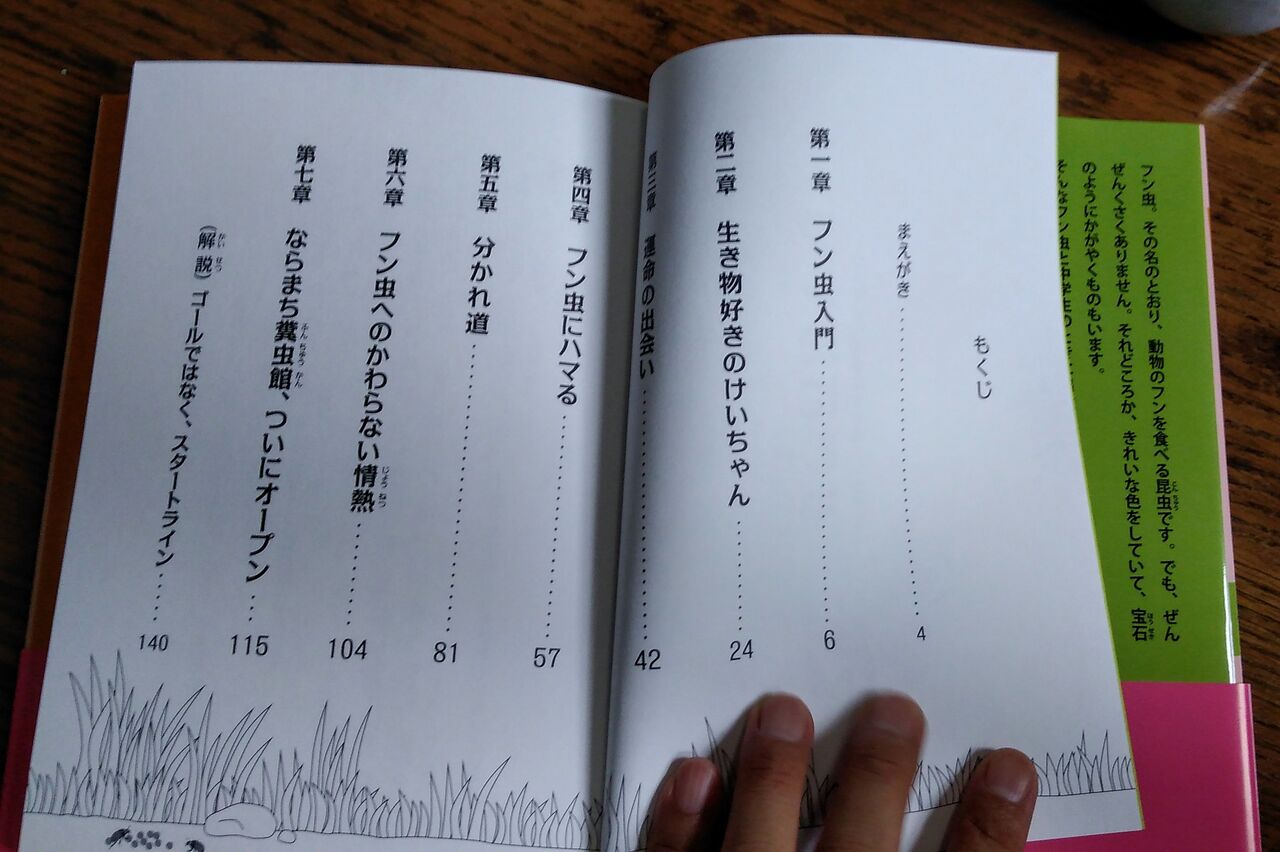 フン虫。その名のとおり、動物のフンを食べる昆虫です。でも、ぜん
ぜんくさくありません。それどころか、きれいな色をしていて、宝石
のようにかがやくものもいます。
そんなフン虫と中学生の
もくじ
まえがき 4
第一章 フン虫入門 6
第二章 生き物好きのけいちゃん 24
第三章 運命の出会い 42
第四章 フン虫にハマる 57
第五章 分かれ道 81
第六章 フン虫へのかわらない情熱 104
第七章 ならまち糞虫館、ついにオープン 115
(解説) ゴールではなく、スタートライン 140